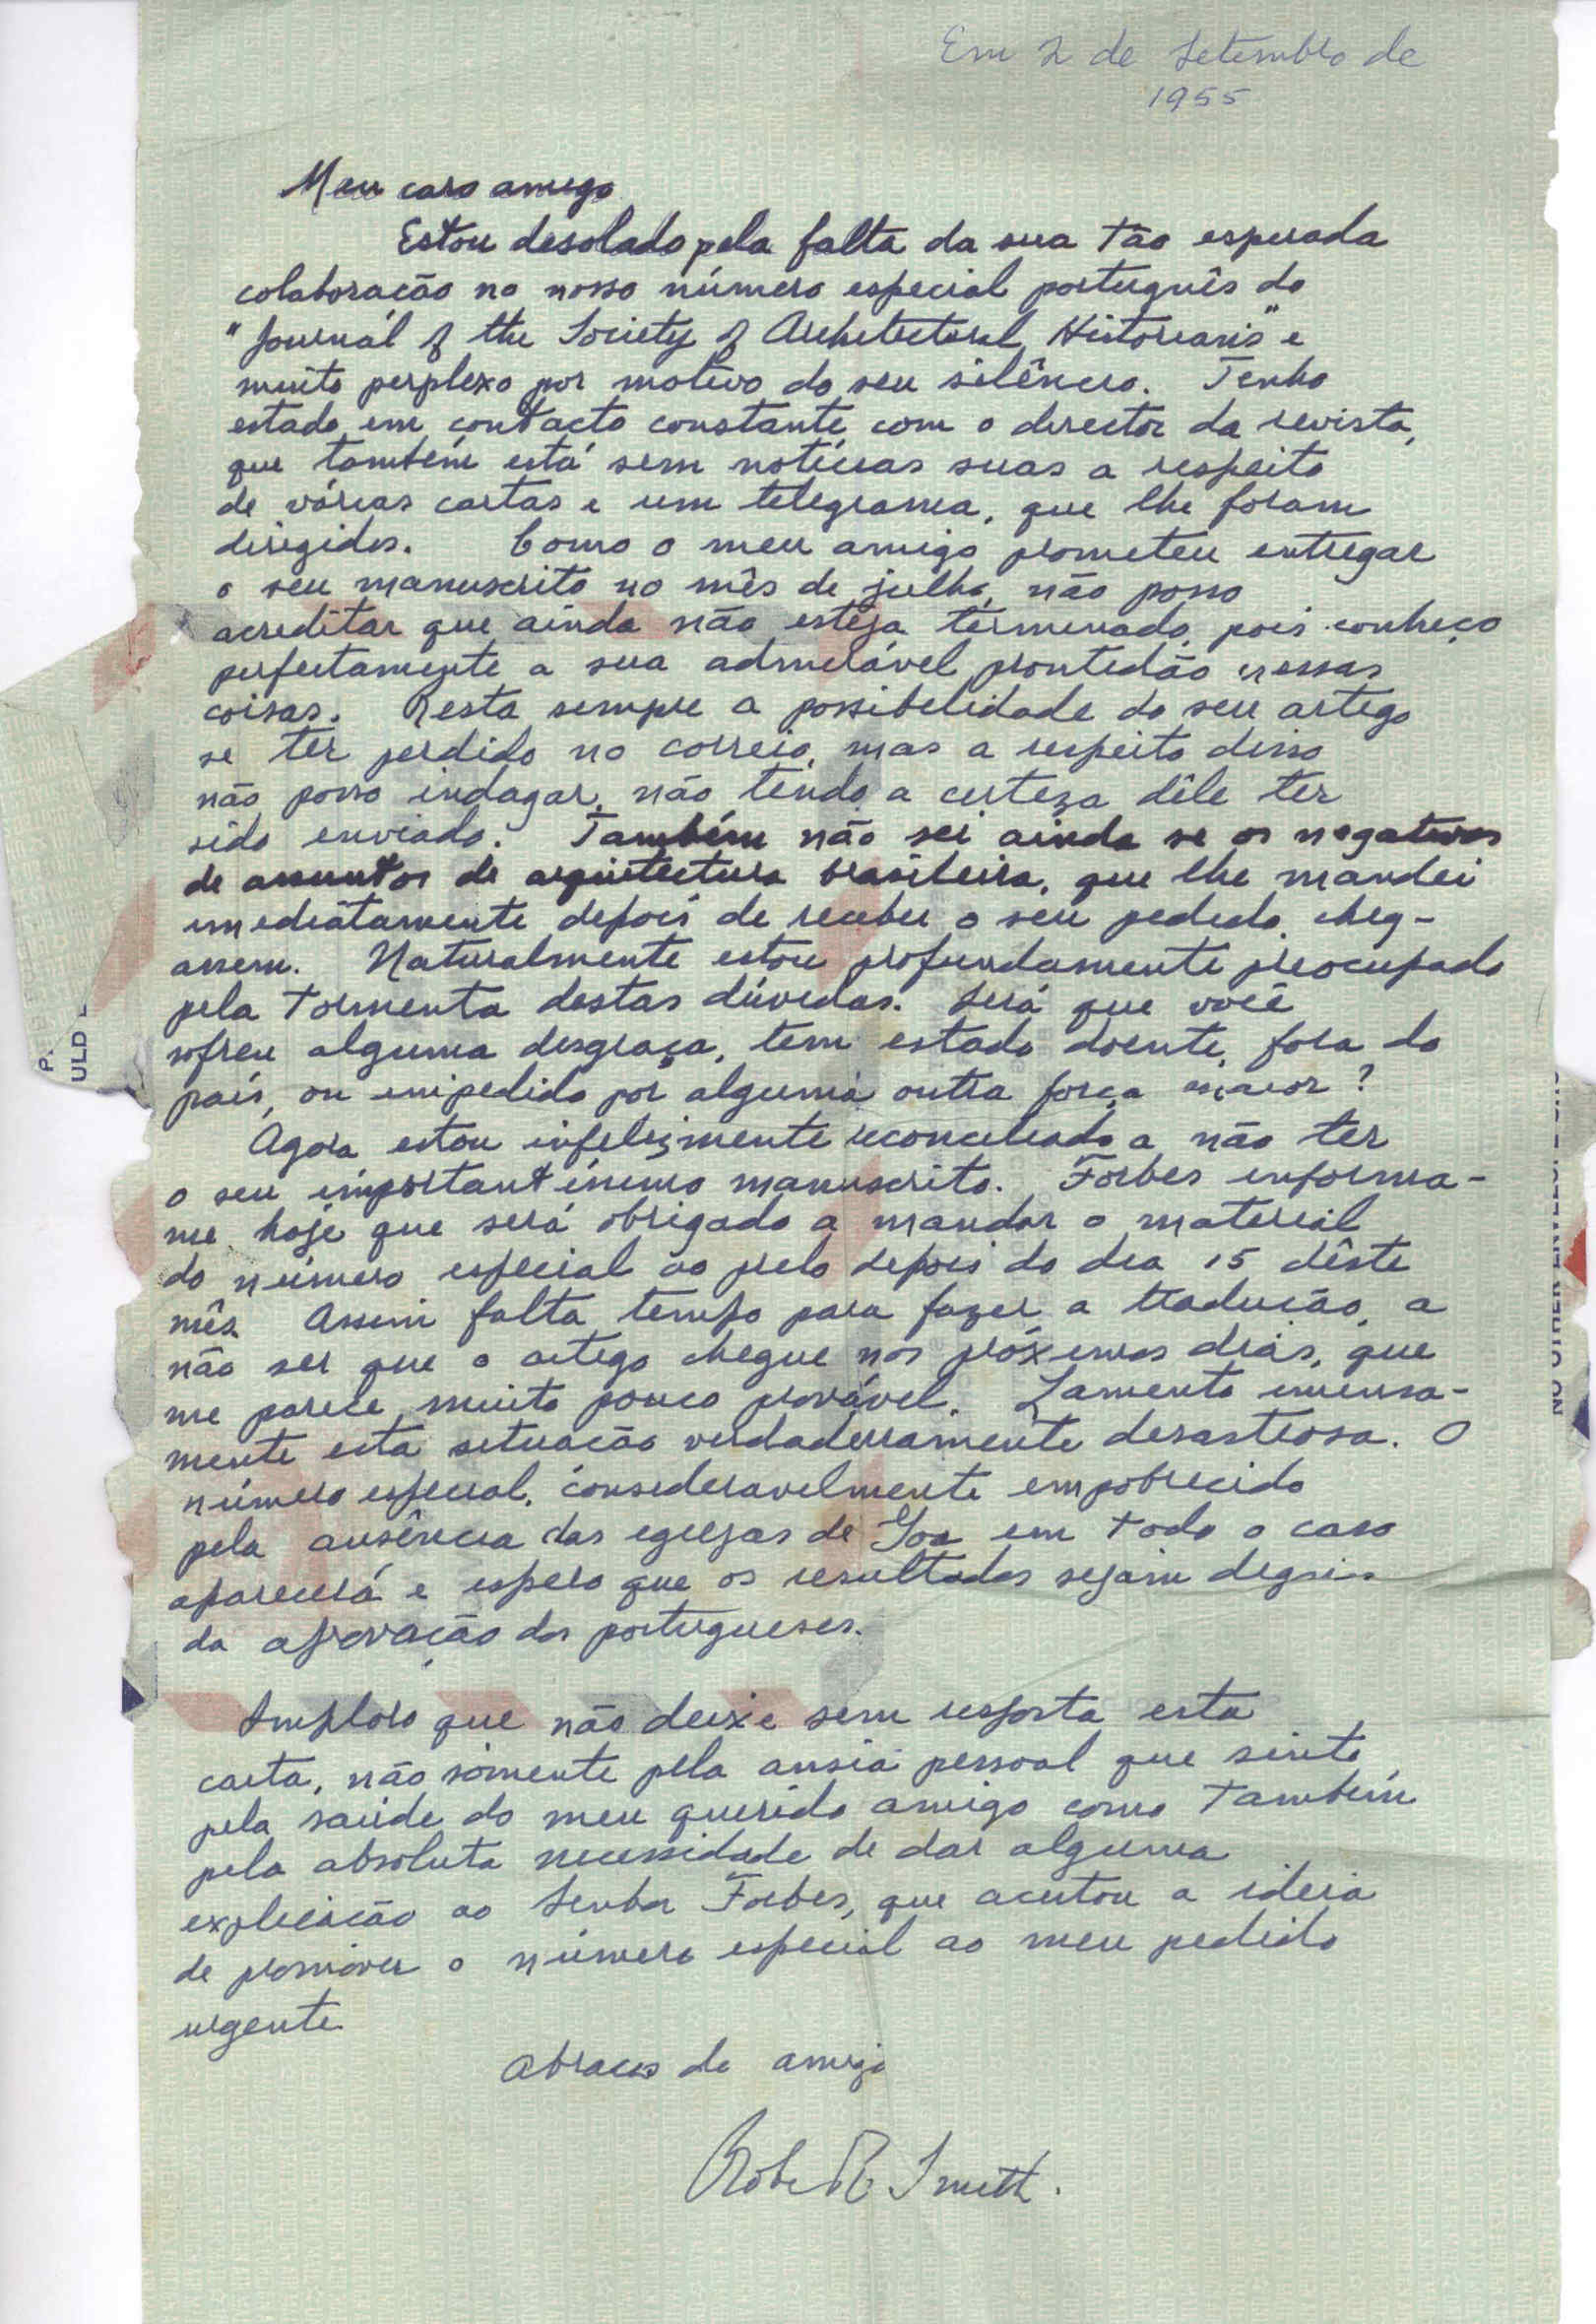 Em 2 de Setembro de
1955
Meu caro amigo
Estou desolado pela falta da sua tão esperada
colaboração no nosso número especial português do
"Journal of the Society of Architectural Historians" e
muito perplexo por motivo do seu silêncio. Tenho
estado em contacto constante com o director da revista,
que também está sem notícias suas a respeito
de várias cartas e um telegrama, que lhe foram
dirigidos. Como o meu amigo prometeu entregar
o seu manuscrito no mês de julho, não posso
acreditar que ainda não esteja terminado, pois conheço
perfeitamente a sua admirável prontidão nessas
coisas. Resta sempre a possibilidade do seu artigo
se ter perdido no correio, mas a respeito disso
não posso indagar, não tendo a certeza dêle ter
sido enviado. Também não sei ainda se os negativos
de assuntos de arquitectura brasileira, que lhe mandei
imediatamente depois de receber o seu pedido, cheg-
assem. Naturalmente estou profundamente preocupado
pela tormenta destas dúvidas. Será que você
sofreu alguma desgraça, tem estado doente, fora do
país, ou impedido por alguma outra força maior?
Agora estou infelizmente reconciliado a não ter
o seu importantíssimo manuscrito. Forbes informa-
me hoje que será obrigado a mandar o material
do número especial ao prelo depois do dia 15 dêste
mês. Assim falta tempo para fazer a tradução, a
não ser que o artigo chegue nos próximos dias, que
me parece muito pouco provável. Lamento imensa-
mente esta situação verdadeiramente desastrosa. O
número especial, consideravelmente empobrecido
pela ausência das egrejas de Goa em todo o caso
aparecerá e espero que os resultados sejam dignos
da aprovação dos portugueses.
Imploro que não deixe sem resposta esta
carta, não sòmente pela ansia pessoal que sinto
pela saúde do meu querido amigo como também
pela absoluta necessidade de dar alguma
explicação ao Senhor Forbes, que aceitou a ideia
de promover o número especial ao meu pedido
urgente.
Abraços do amigo
Robert C Smith.
P.
ULD
NO OTHER ENVELOPE